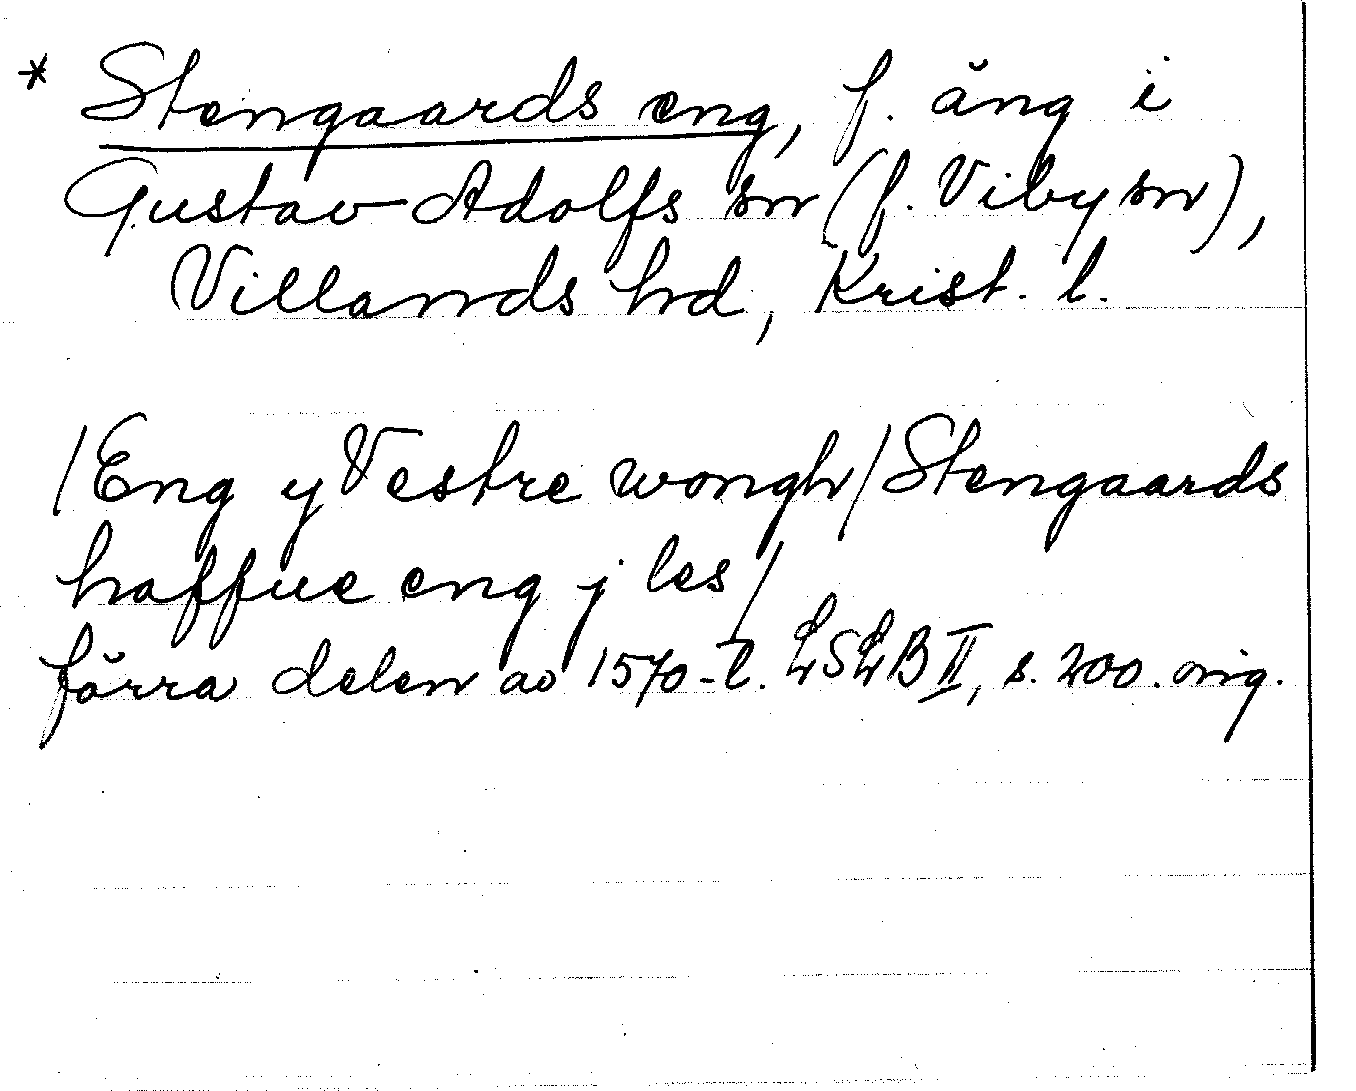 * Stengaards eng, f. äng i
Gustav-Adolfs sn (f. Viby sn),
Villands hd, Krist. l.
/Eng y Vestre wongh/Stengaards
haffue eng j les/
förra delen av 1570-t. LSLB II, s. 200. orig.